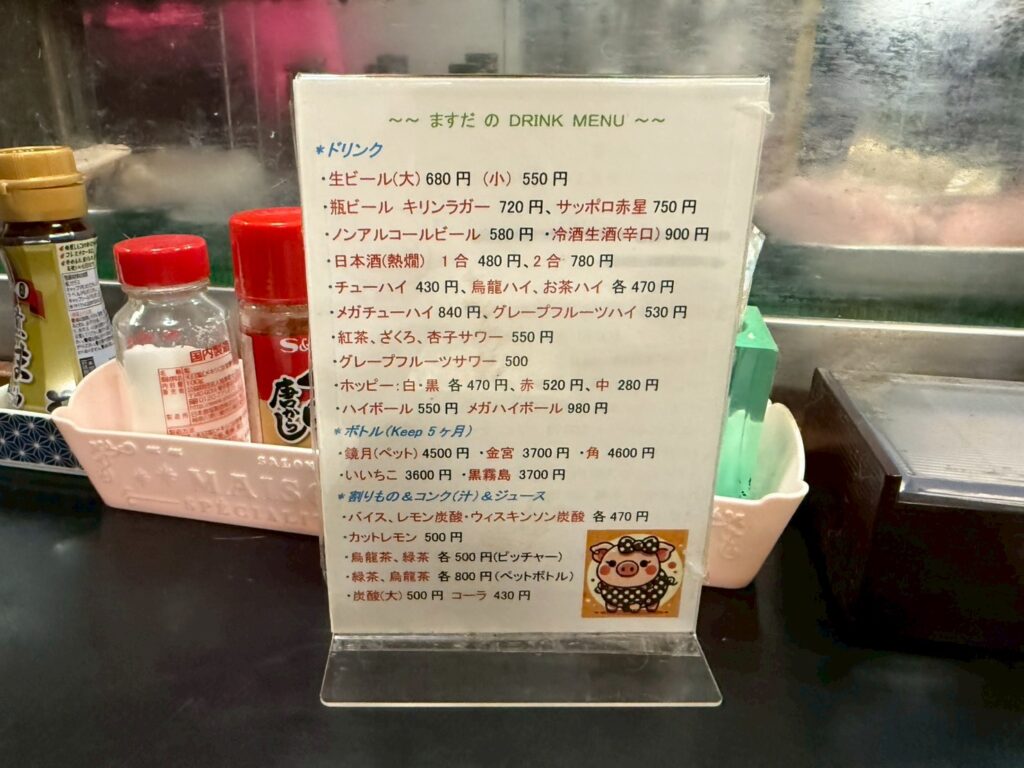 ~~ ますだ の DRINK MENU ~~
*ドリンク
・生ビール(大) 680 円 (小) 550 円
・瓶ビール キリンラガー 720 円、サッポロ赤星 750 円
・ノンアルコールビール 580 円 ・冷酒生酒(辛口) 900 円
・日本酒(熱燗) 1 合 480 円、2 合 780 円
・チューハイ 430 円、烏龍ハイ、お茶ハイ 各 470 円
・メガチューハイ 840 円、グレープフルーツハイ 530 円
・紅茶、ざくろ、杏子サワー 550 円
・グレープフルーツサワー 500
・ホッピー：白・黒 各 470 円、赤 520 円、中 280 円
・ハイボール 550 円 メガハイボール 980 円
*ボトル(Keep 5 ヶ月)
・鏡月(ペット) 4500 円 ・金宮 3700 円 ・角 4600 円
・いいちこ 3600 円 ・黒霧島 3700 円
*割りもの＆コンク(汁)＆ジュース
・バイス、レモン炭酸・ウィスキンソン炭酸 各 470 円
・カットレモン 500 円
・烏龍茶、緑茶 各 500 円(ピッチャー)
・緑茶、烏龍茶 各 800 円(ペットボトル)
・炭酸(大) 500 円 コーラ 430 円
国内製造
S&
唐からし
SALON
MAISO
SPECIAL